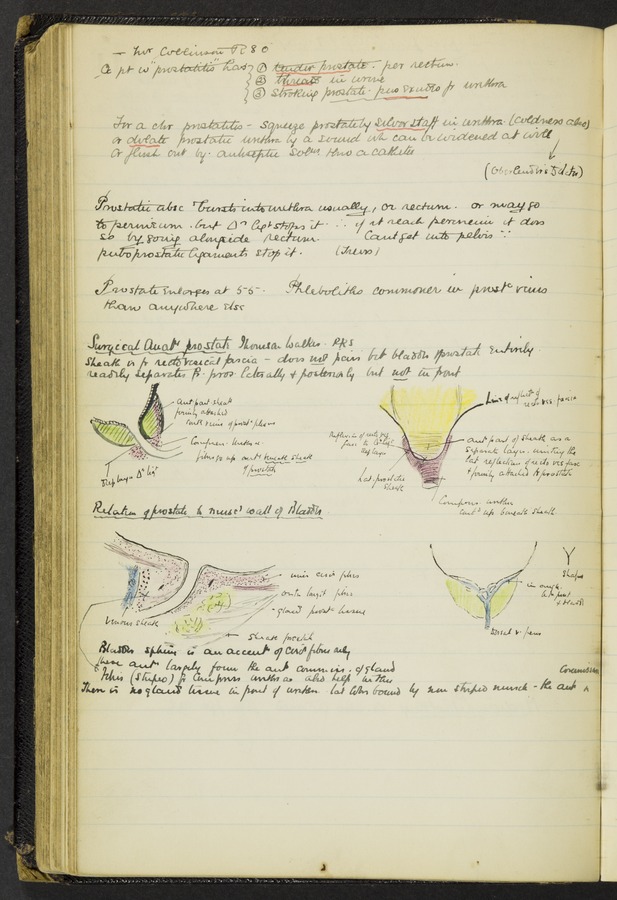 — Mr Collinson R 80
A pt w "prostatitis" has ① tender prostate - per rectum.
② threads in urine
③ stroking prostate - pus exudes fr urethra
For a chr prostatitis - squeeze prostate by silver staff in urethra. (Coldness also)
or dilate prostatic urethra by a sound wh can be widened at will
or flush out by antiseptic solns thro a catheter
(Oberlander's dilator)
Prostatic absc bursts into urethra usually, or rectum. or may go
to perineum. but Δr ligt stops it ∴ if it reach perineum it does
so by going alongside rectum. Cant get into pelvis ∵
puboprostatic ligaments stop it. (Treves)
Prostate enlarges at 55. Phleboliths commoner in prostc veins
than anywhere else
Surgical Anaty prostate Thomson Walker. RCS
Sheath is fr rectovesical fascia - does not pass bet bladder & prostate entirely
readily separates fr. pros laterally & posteriorly but not in front
Ant part sheath
firmly attached
Compress. urethrae
fibres go up antr beneath sheath
of prostate
Deep layer Δr ligt
Line of reflectn of
recto ves fascia
ant part of sheath as a
separate layer. uniting the
lat reflection of recto ves fasc
& firmly attached to prostate
Lat. prostatic
sheath
Compress urethr
cont up beneath sheath
Relation of prostate to muscr wall of Bladder
inner circr fibres
outer longit fibres
glandr prostc tissue
Venous sheath
sheath prostate
Y
shape
in angle
bet prost
& bladdr
Dorsal v penis
Bladder sphinc is an accentn of circr fibres only
these antr largely form the ant commiss. of gland
Fibres (striped) fr Compress urethrae also help in this
Commission
There is no gland tissue in front of urethra. lat lobes bound by non striped muscle - the ant